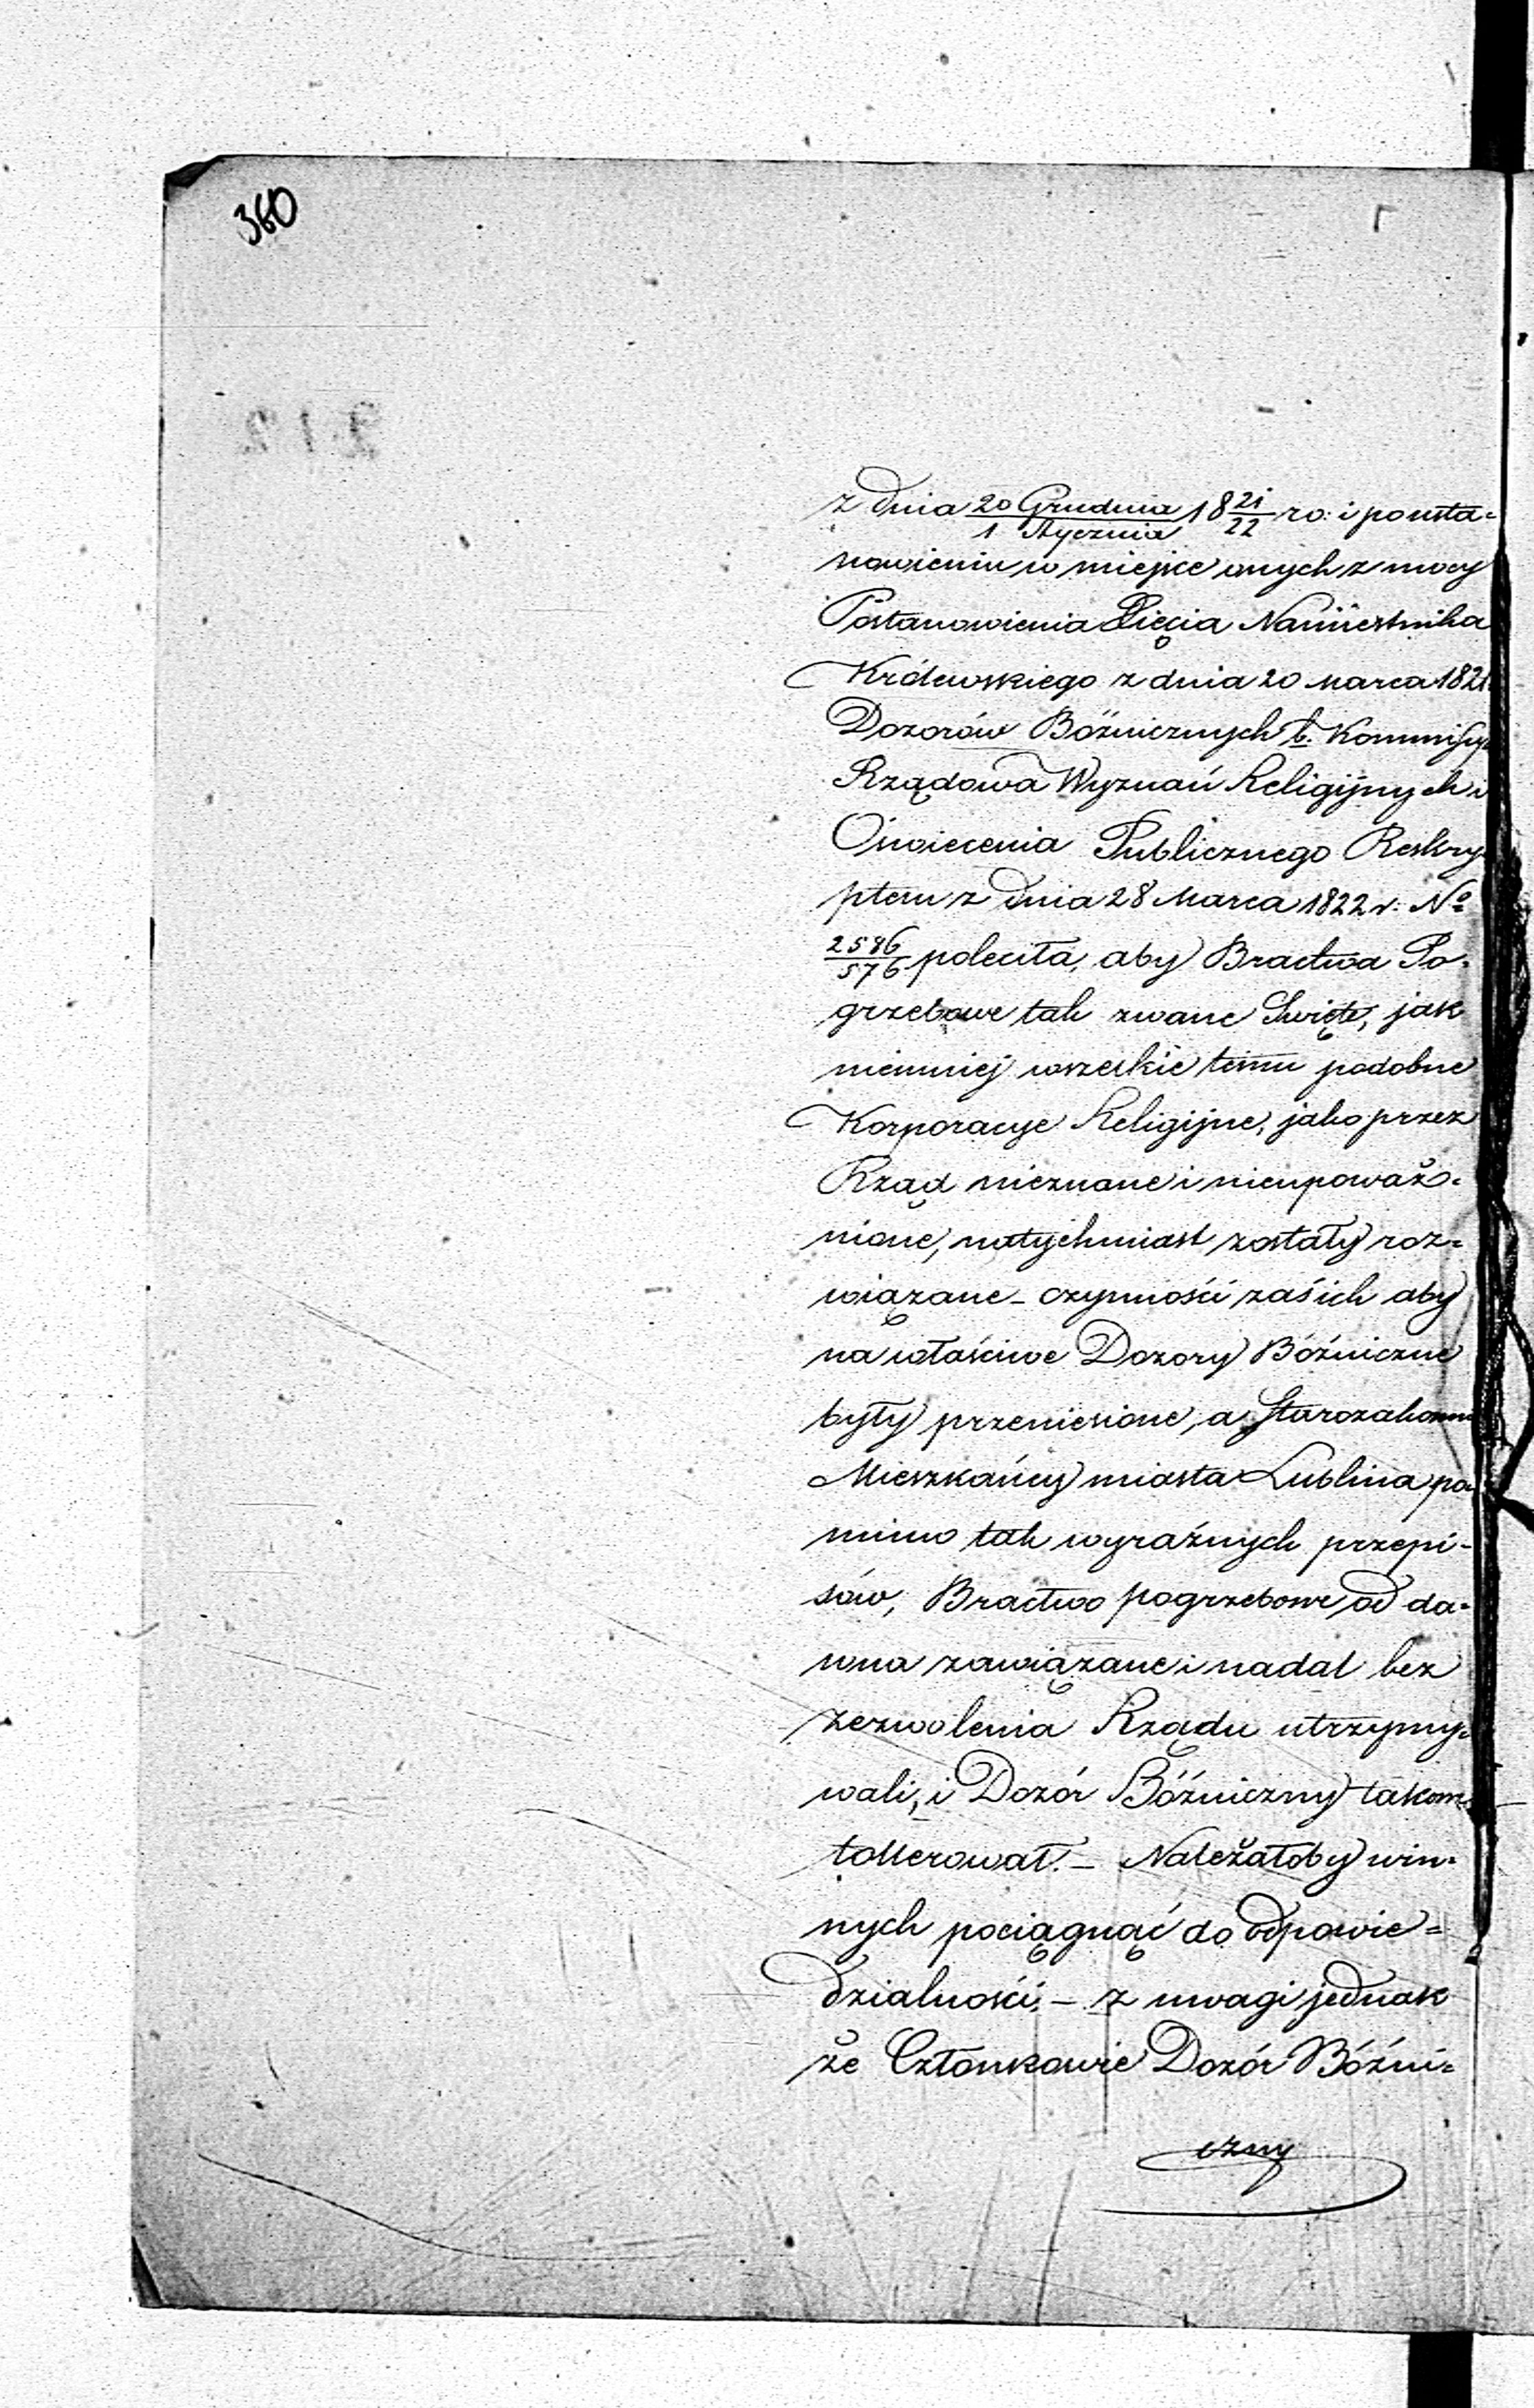 360
z dnia 20 Grudnia/1 Stycznia 18 21/22 ro: i posta=
nowieniu w miejsce onych z mocy
Postanowienia Xięcia Namiestnika
Królewskiego z dnia 20 Marca 1821
Dozorów Bóżnicznych b. Kommissya
Rządowa Wyznań Religijnych i
Oświecenia Publicznego Reskry
ptem z dnia 28 Marca 1822 r. No
2586/576 poleciła, aby Bractwa Po=
grzebowe tak zwane Święte, jak
niemniej wszelkie temu podobne
Korporacye Religijne, jako przez
Rząd nieznane i nieupoważ=
nione, natychmiast zostały roz=
wiązane – czynności zaś ich aby
na właściwe Dozory Bóźniczne
były przeniesione, a Starozakonni
Mieszkańcy miasta Lublina po
mimo tak wyraźnych przepi-
sów, Bractwo pogrzebowe od da=
wna zawiązane i nadal bez
zezwolenia Rządu utrzymy=
wali, i Dozór Bóźniczny takowe
tollerował. – Należałoby win=
nych pociągnąć do odpowie=
dzialności, – z uwagi jednak
że Członkowie Dozór Bóźni=
czny